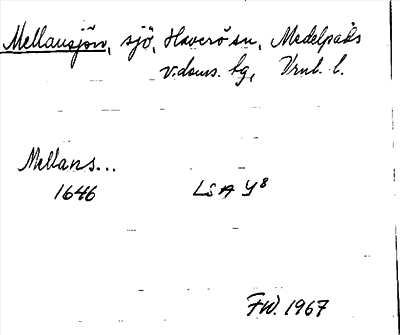 Mellansjön, sjö, Haverö sn, Medelpads
v. doms. hg, Vrnl. l.
Mellans...
1646 LSA Y8
FW. 1967